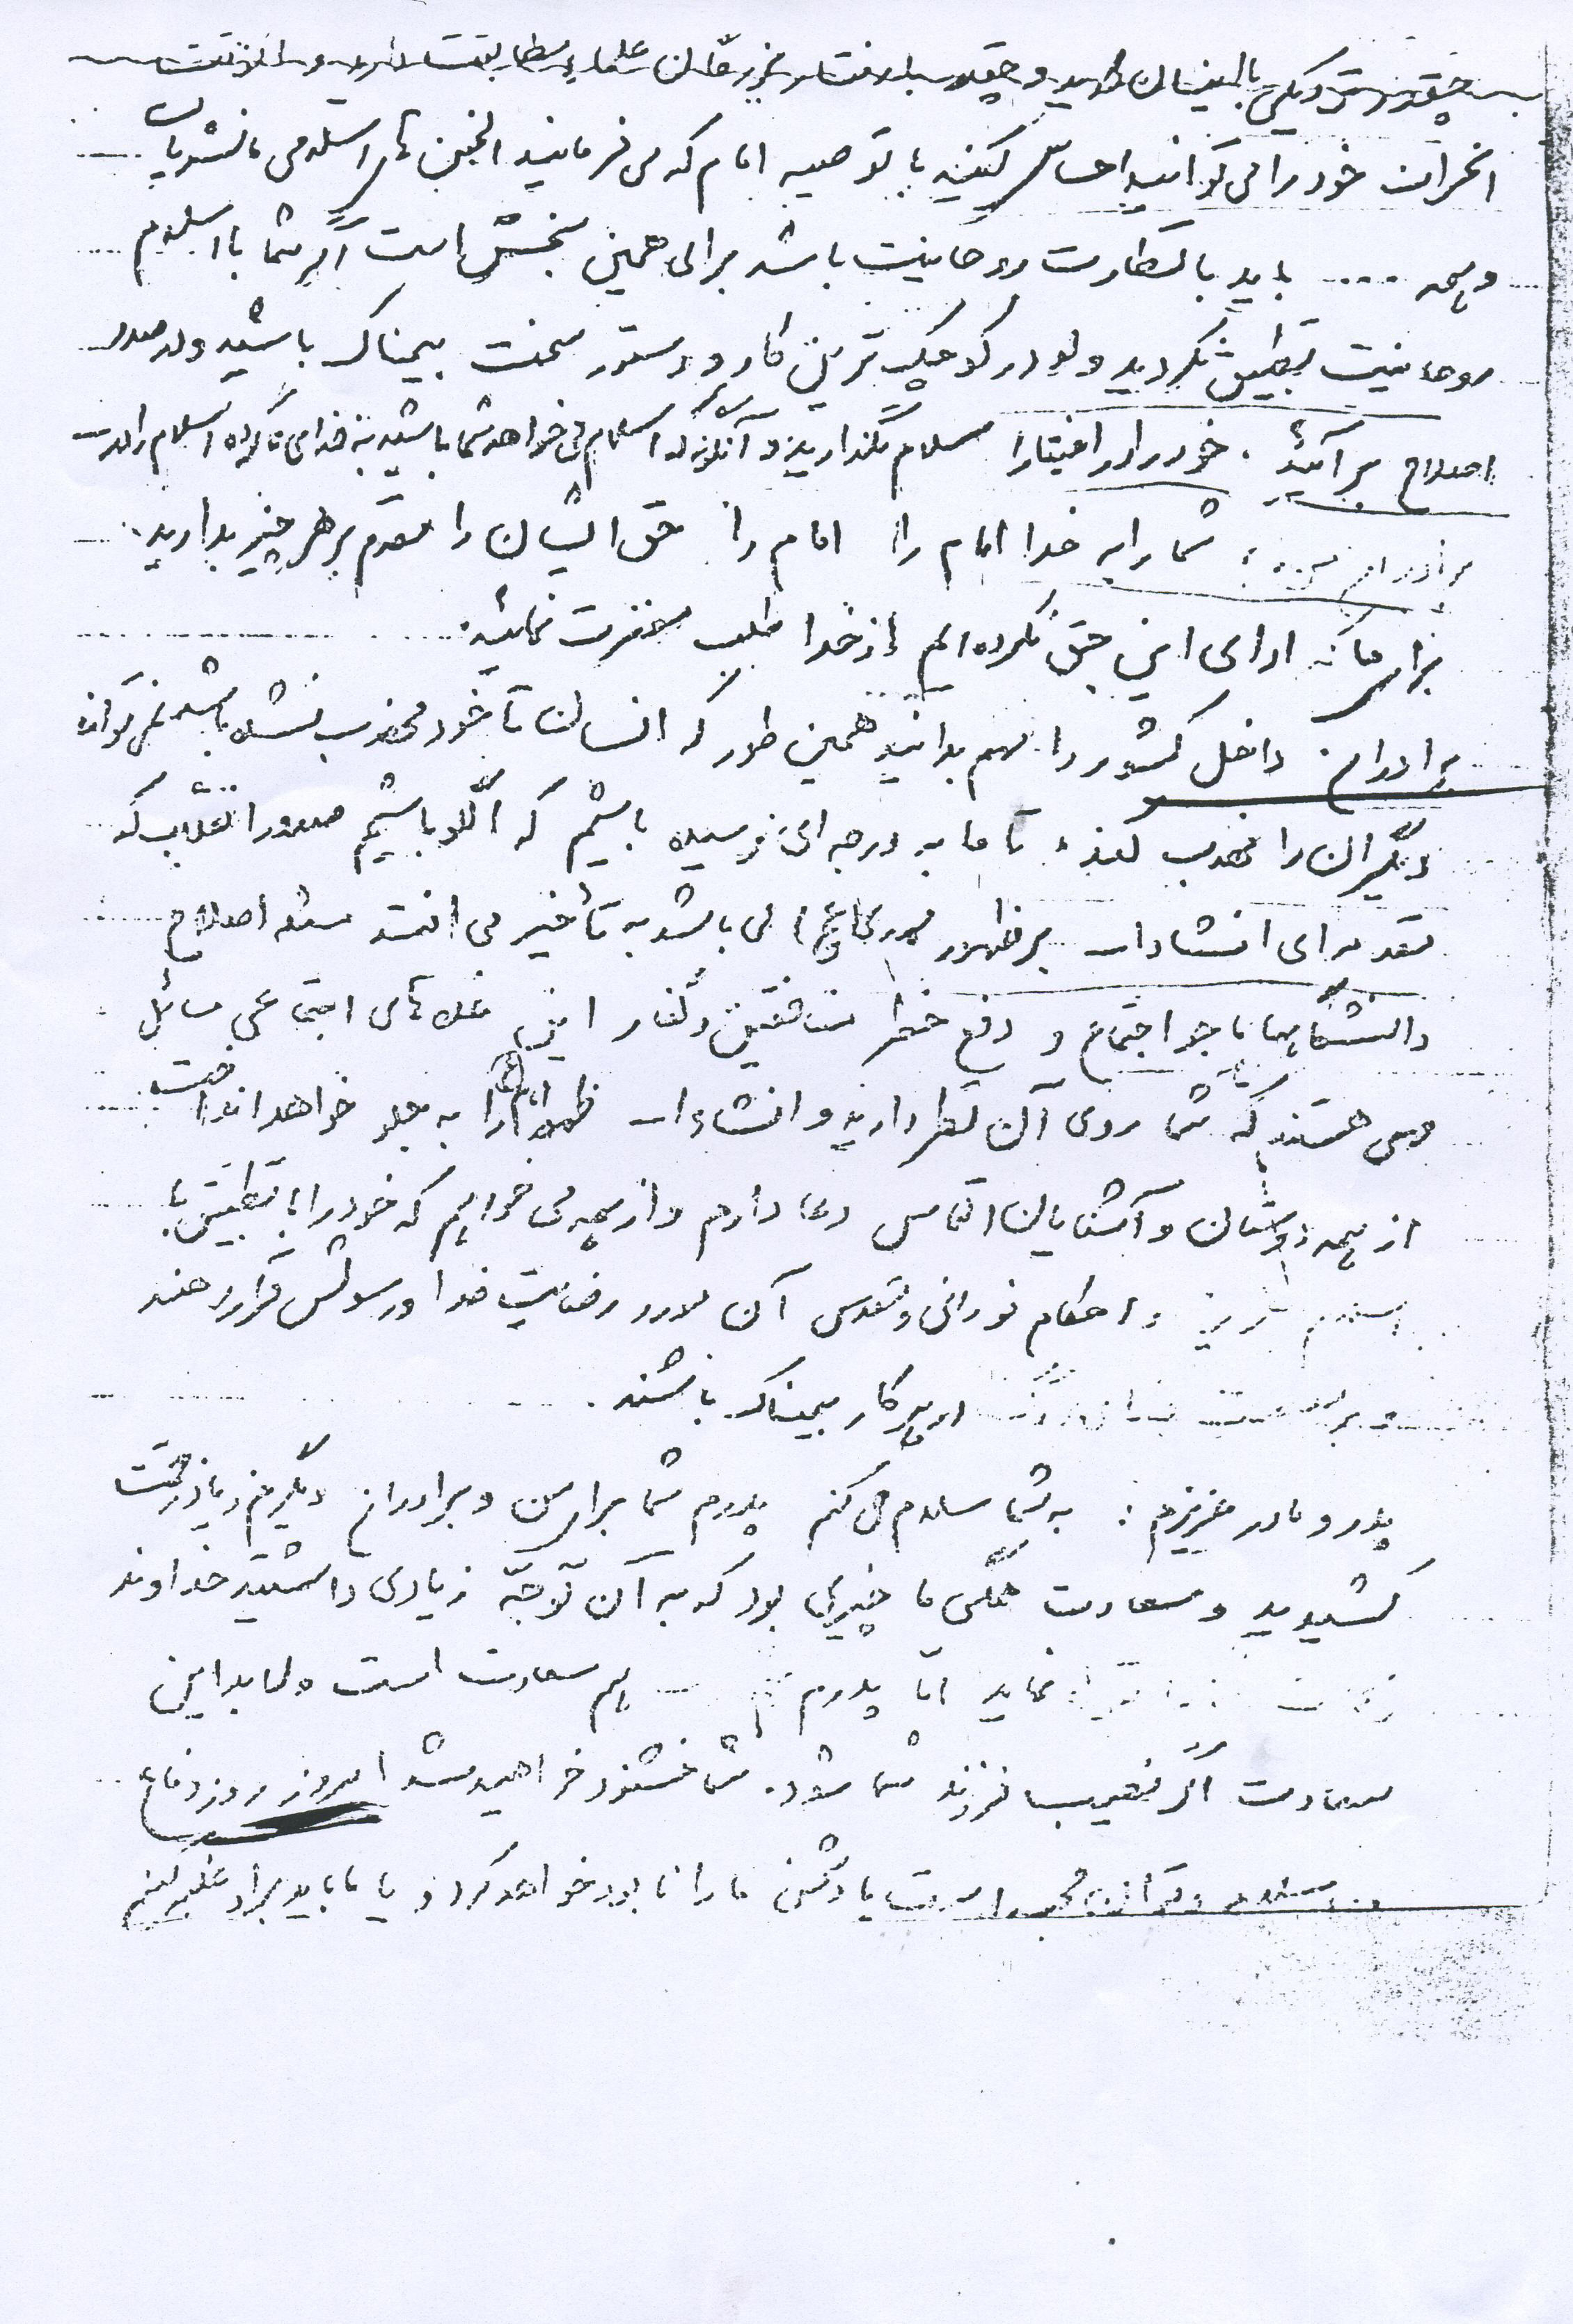 چقدر نزدیکی با ایشان دارید و چقدر با رفتار علماء مطابقت دارید و
انحراف خود را می توانید احساس کنید با توصیه امام که می فرمایند انجمن های اسلامی ما نشریات
و همه .... باید با نظارت روحانیت باشد برای همین بخش است اگر شما با اسلام
روحانیت تطبیق نکردید ولو در کوچک ترین کار و دستور سخت بیمناک باشید و در صدد
اصلاح برآئید . خود را در اختیار اسلام بگذارید و آنگونه که اسلام می خواهد شما باشید نه خدای ناکرده اسلام را
شما را به خدا امام را امام را حق ایشان را مقدم بر هر چیز بدارید.
برای ما که ادای این حق نکرده ایم از خدا طلب مغفرت نمائید.
برادران داخل کشور را هم بدانید همین طور که انسان تا خود مهذب نشده باشد نمی تواند
دیگران را مهذب کند. تا ما به درجه ای نرسیده باشیم که الگو باشیم صدور انقلاب که
مقدمه ای انشاءا.. بر ظهور مهدی (عج) می باشد به تأخیر می افتد مسئله اصلاح
دانشگاهها تا جو اجتماع و دفع خطر منافقین و کفار این های اجتماعی مسائل
مهمی هستند که شما روی آن نظر دارید و انشاءا.. ظهور امام را به جلو خواهد انداخت
از همه دوستان و آشنایان التماس دعا دارم و از همه می خواهم که خود را با تطبیق با
اسلام عزیز و احکام نورانی و مقدس آن مورد رضایت خدا و رسولش قرار دهند
و در هر کار بیمناک باشند.
پدر و مادر عزیزم : به شما سلام می کنم پدرم شما برای من و برادران دیگرم زیاد زحمت
کشیدید و سعادت همگی ما چیزی بود که به آن توجّه زیادی داشتید خداوند
نماید امّا پدرم هم سعادت است و لابد این
سعادت اگر نصیب فرزند شما شود. شما خشنود خواهید شد امروز روز دفاع
از اسلام و قرآن است یا دشمن ما را نابود خواهد کرد و یا ما باید بر او غلبه کنیم